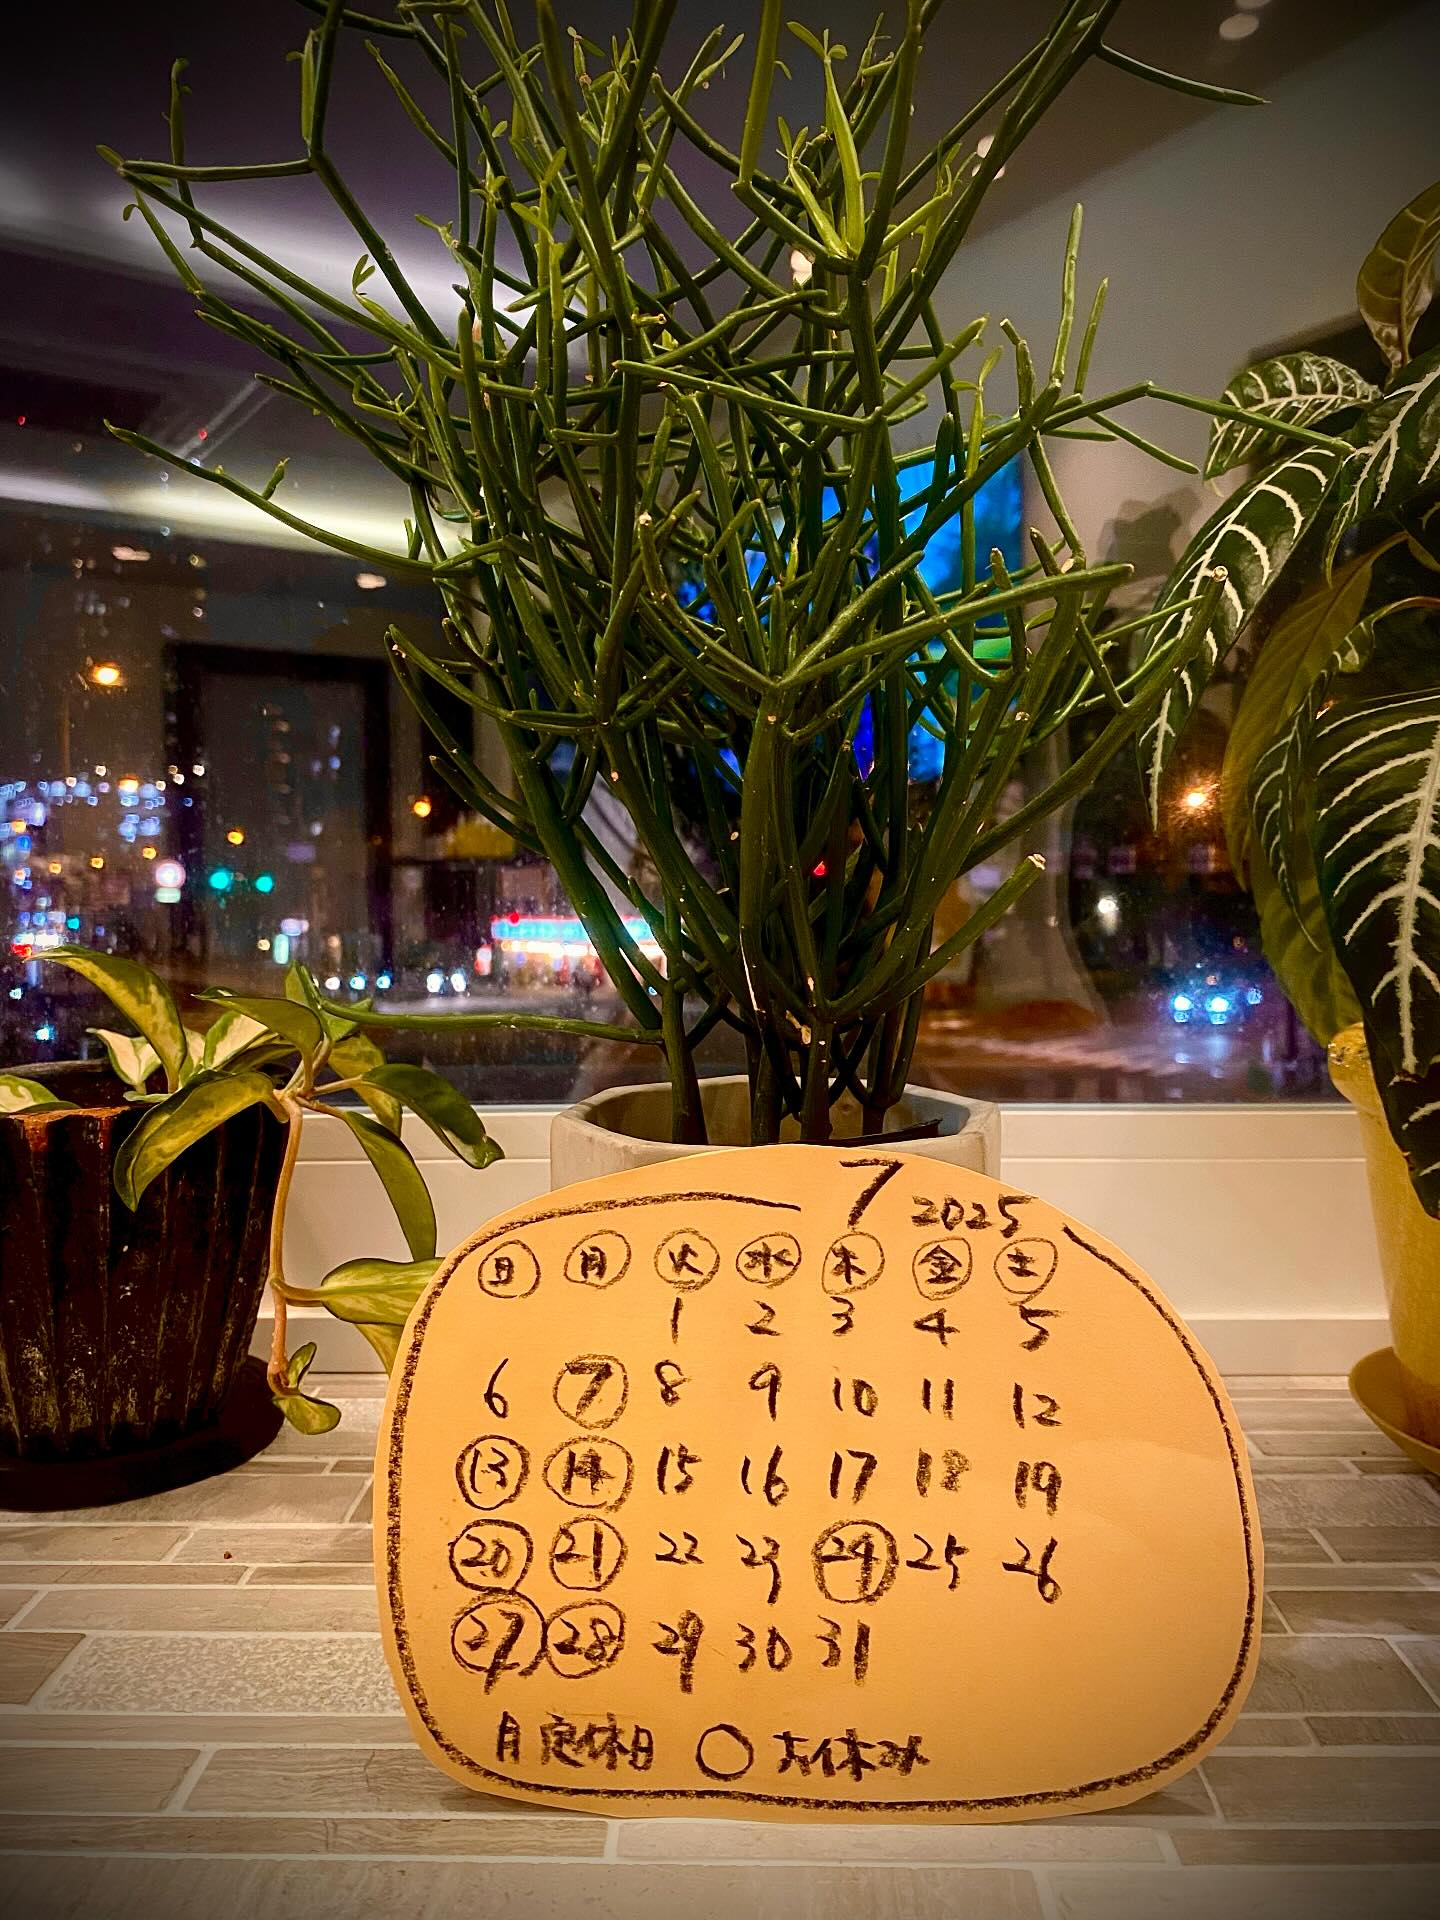 7 2025
日 月 火 水 木 金 土
1 2 3 4 5
6 7 8 9 10 11 12
13 14 15 16 17 18 19
20 21 22 23 24 25 26
27 28 29 30 31
月 定休日 ○ お休み